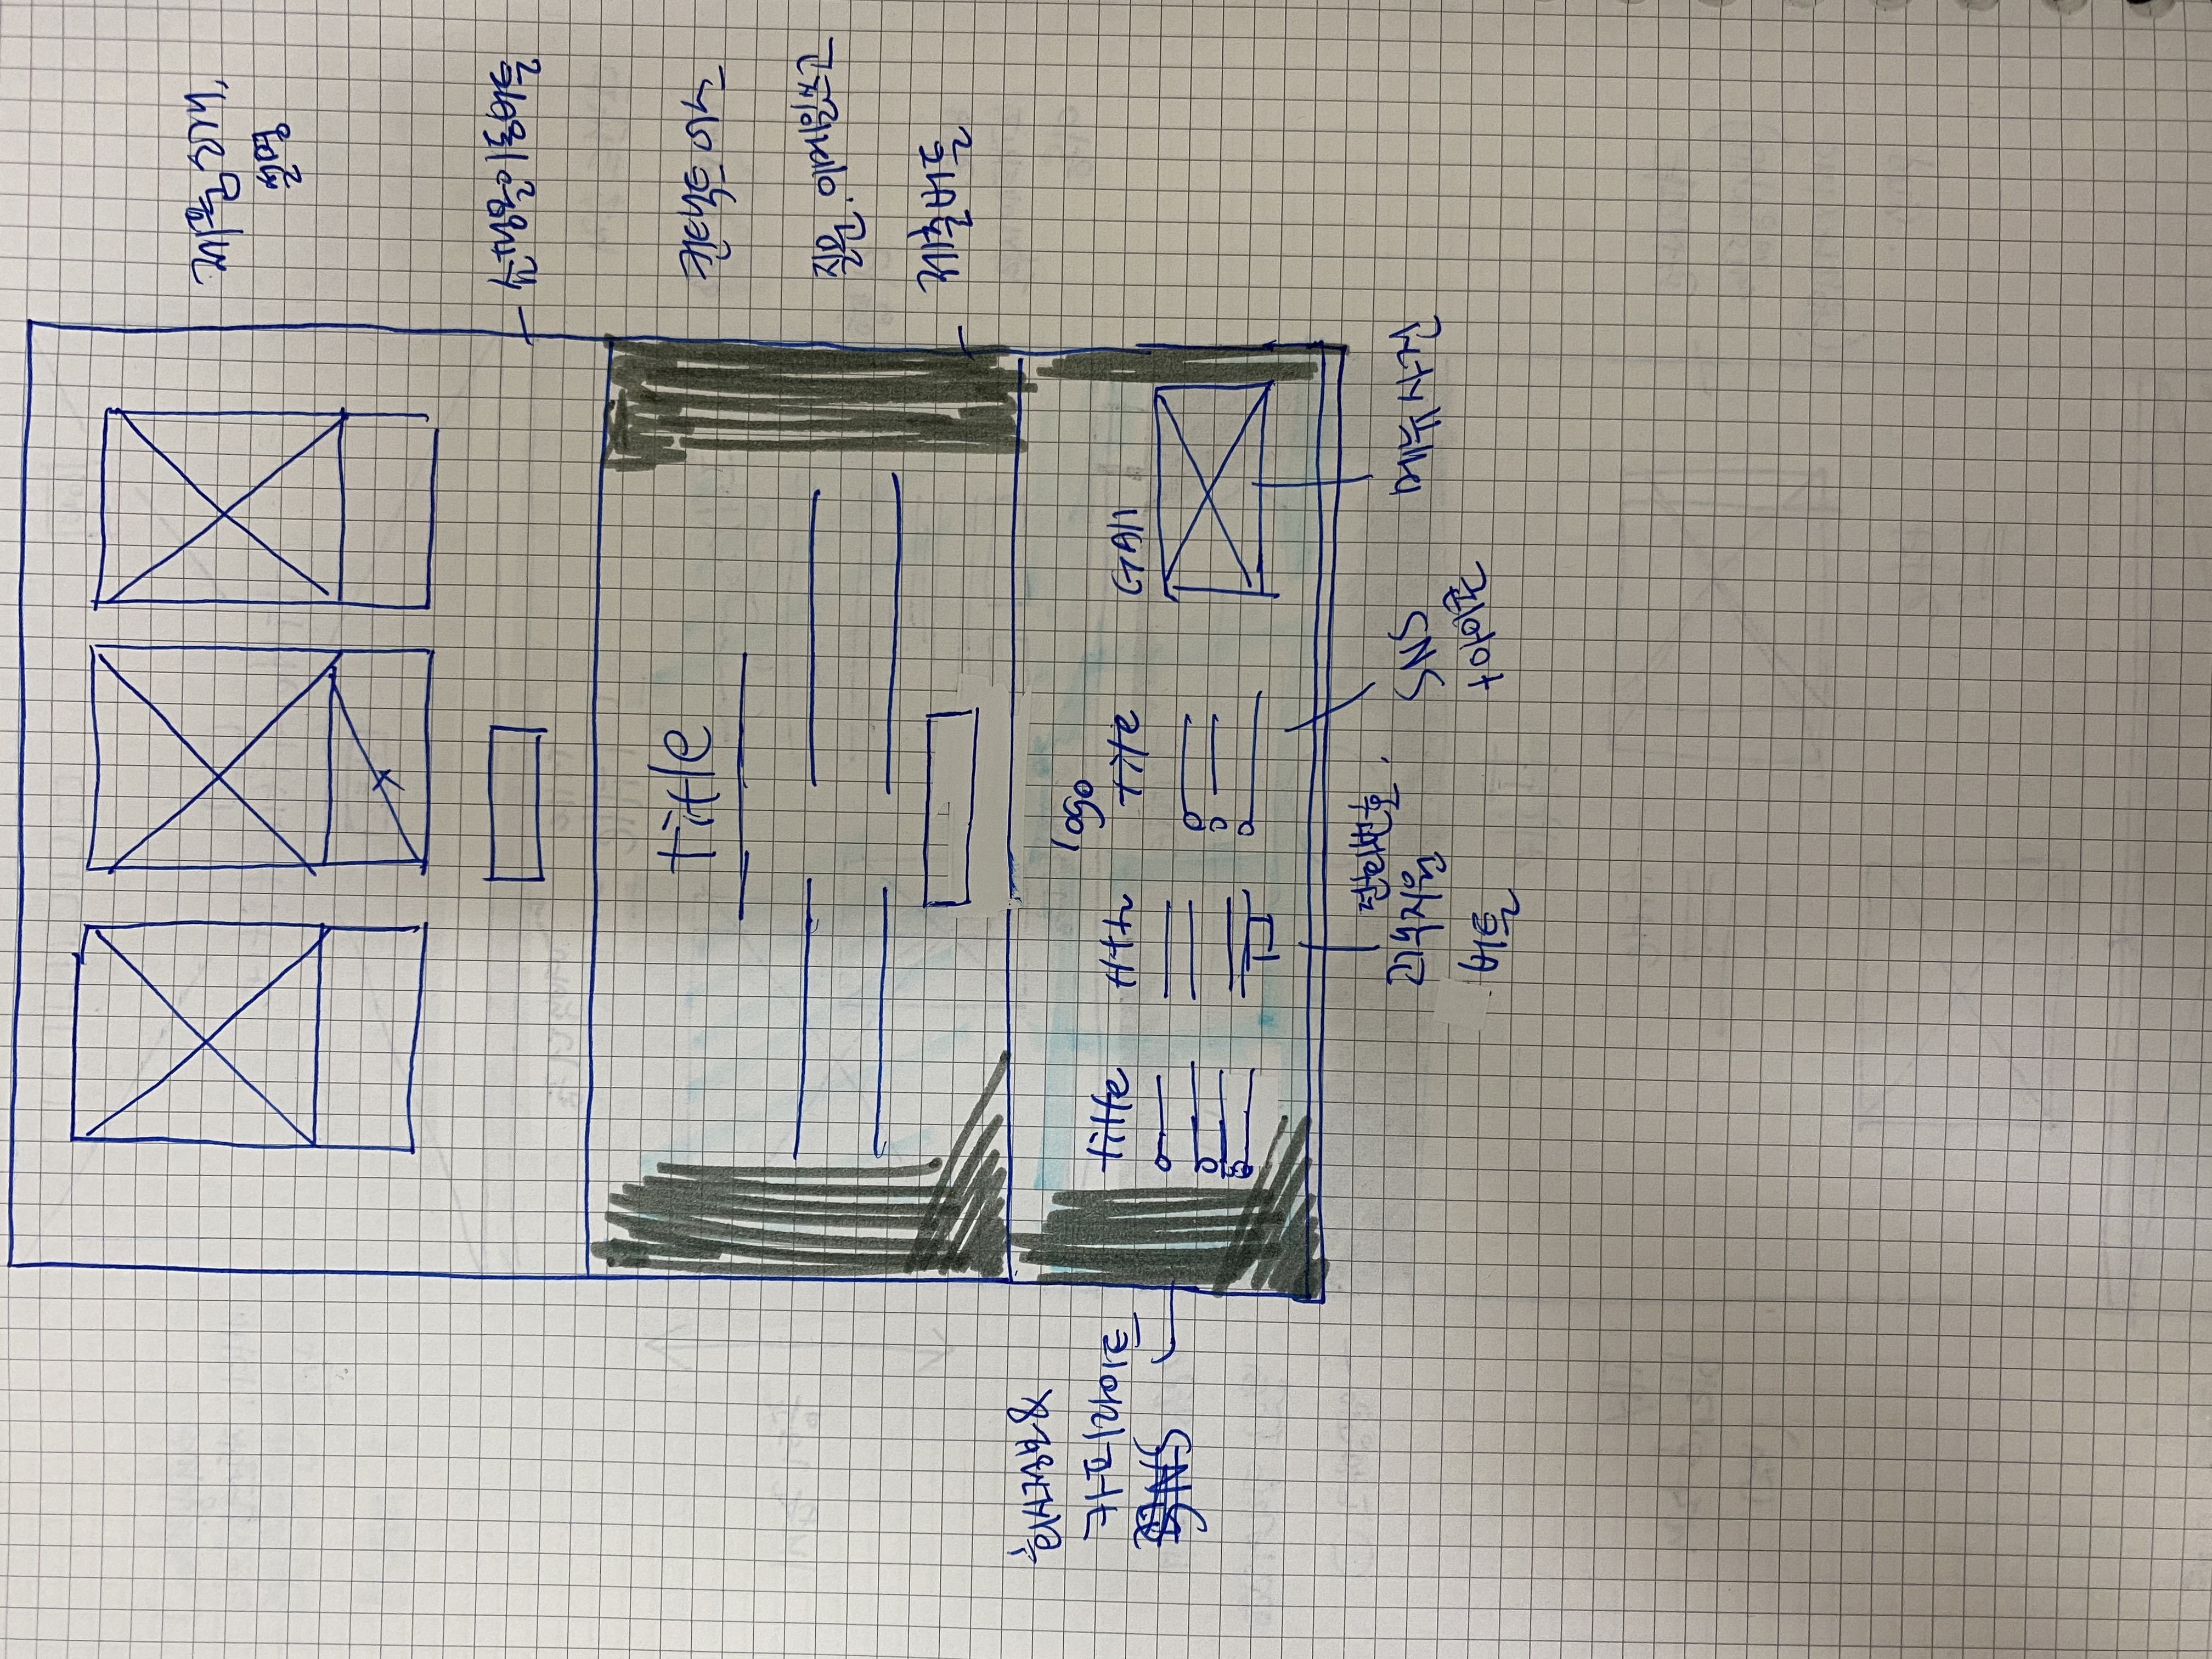 제품소개,
설명
쇼핑몰이동버튼
title
컨택트 어스
질문. 이메일쓰고
제출버튼
회사정보&
카피라이트
SNS
logo
title
title
GAll
전화번호.
고객지원
버튼
SNS
+아이콘
메뉴사진